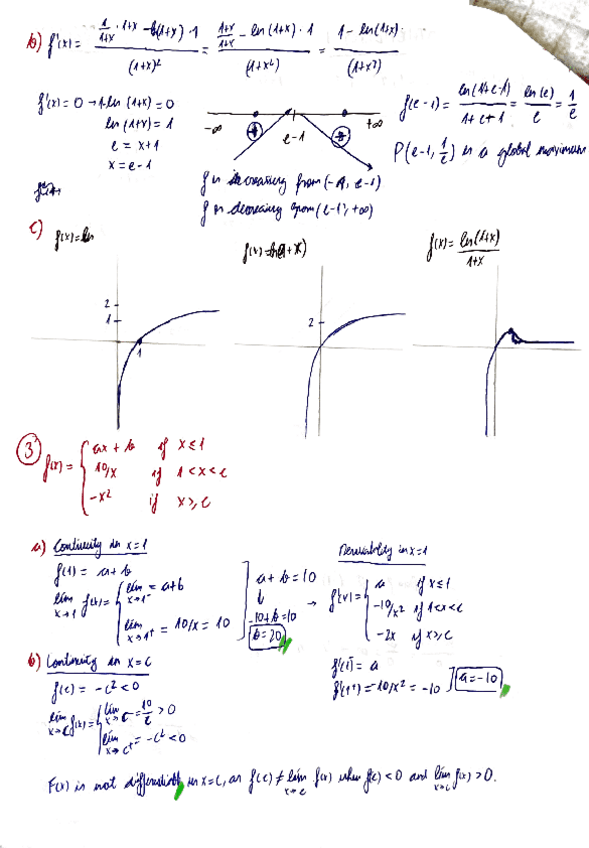 b) f'(x) = (1/(1+x) · 1+x - ln(1+x) · 1)/(1+x)² = ((1+x)/(1+x) - ln(1+x) · 1)/(1+x²) = (1 - ln(1+x))/(1+x²)
f'(x) = 0 → 1 - ln(1+x) = 0
ln(1+x) = 1
e = x+1
x = e-1
-∞ + e-1 +∞
f(e-1) = ln(1+e-1)/(1+e+1) = ln(e)/e = 1/e
P(e-1, 1/e) is a global
f is increasing from (-1, e-1)
f is decreasing from (e-1, +∞)
c) f(x) = ln
f(x) = ln(1+x)
f(x) = ln(1+x)/(1+x)
2
1
1
2
③ f(x) = { ax + b if x ≤ 1
10/x if 1 < x < c
-x² if x ≥ c
a) Continuity in x = 1
f(1) = a + b
lím x→1 f(x) = { lím x→1⁻ = a+b
lím x→1⁺ = 10/x = 10
a + b = 10
b
-10 + b = 10
b = 20
Derivability in x = 1
→ f'(x) = { a if x ≤ 1
-10/x² if 1 < x < c
-2x if x ≥ c
f'(1⁻) = a
f'(1⁺) = -10/x² = -10
a = -10
b) Continuity in x = c
f(c) = -c² < 0
lím x→c f(x) = { lím x→c⁻ = 10/c > 0
lím x→c⁺ = -c² < 0
F(x) is not differentiable in x = c, as f(c) ≠ lím x→c f(x) when f(c) < 0 and lím x→c f(x) > 0.